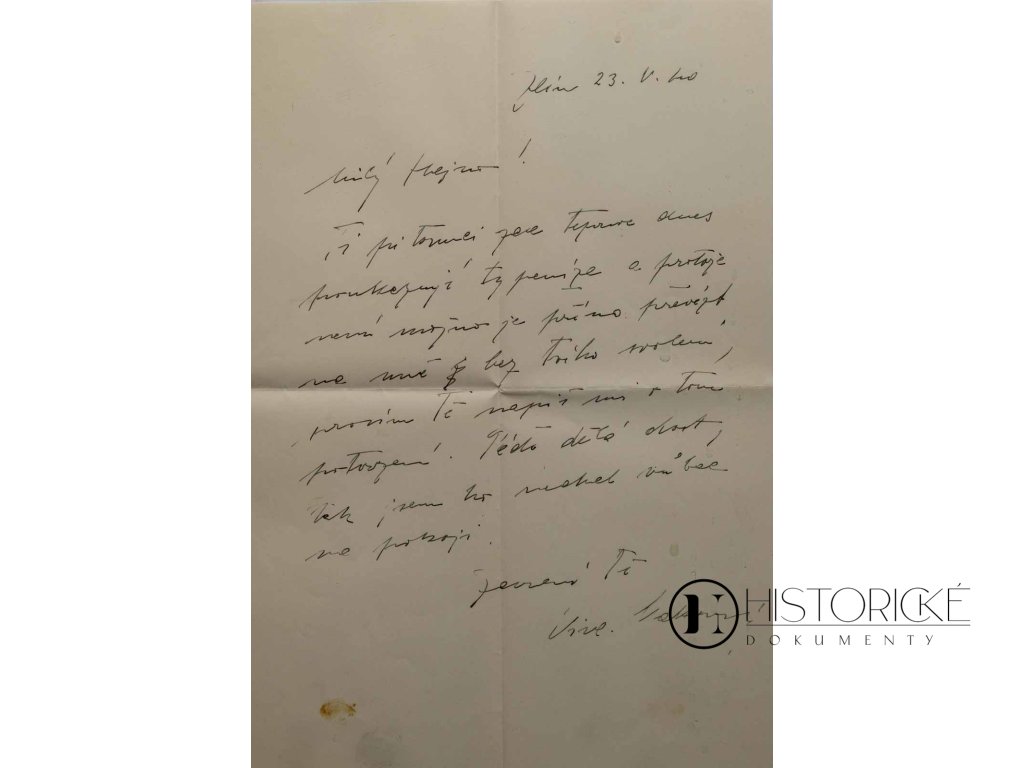 Zlín 23. V. 40
Milý Hejno!
Ti pitomci zde teprve dnes
poukazují ty peníze a protože
není možno je přímo převést
na mně bez Tvého svolení,
prosím Tě napiš mi o tom
potvrzení. Péďa dělá dost,
tak jsem ho nechal vůbec
na pokoji.
zdraví Tě
HISTORICKÉ
DOKUMENTY